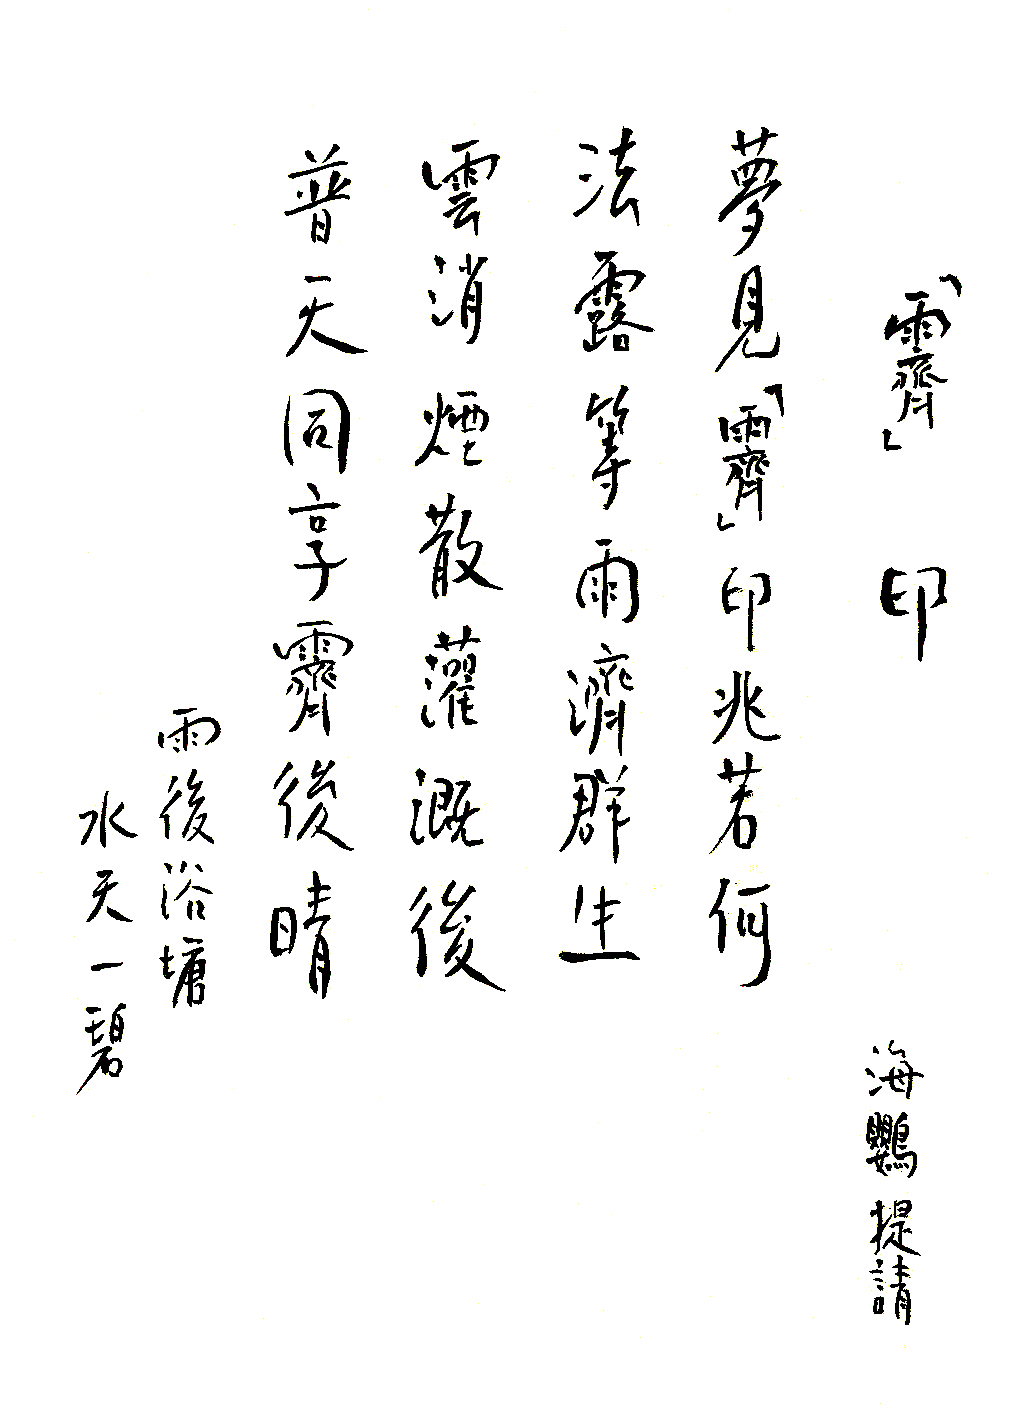 「霽」印
海鸚提請
夢見「霽」印兆若何
法露等雨濟群生
雲消煙散灌溉後
普天同享霽後晴
雨後浴塘
水天一碧